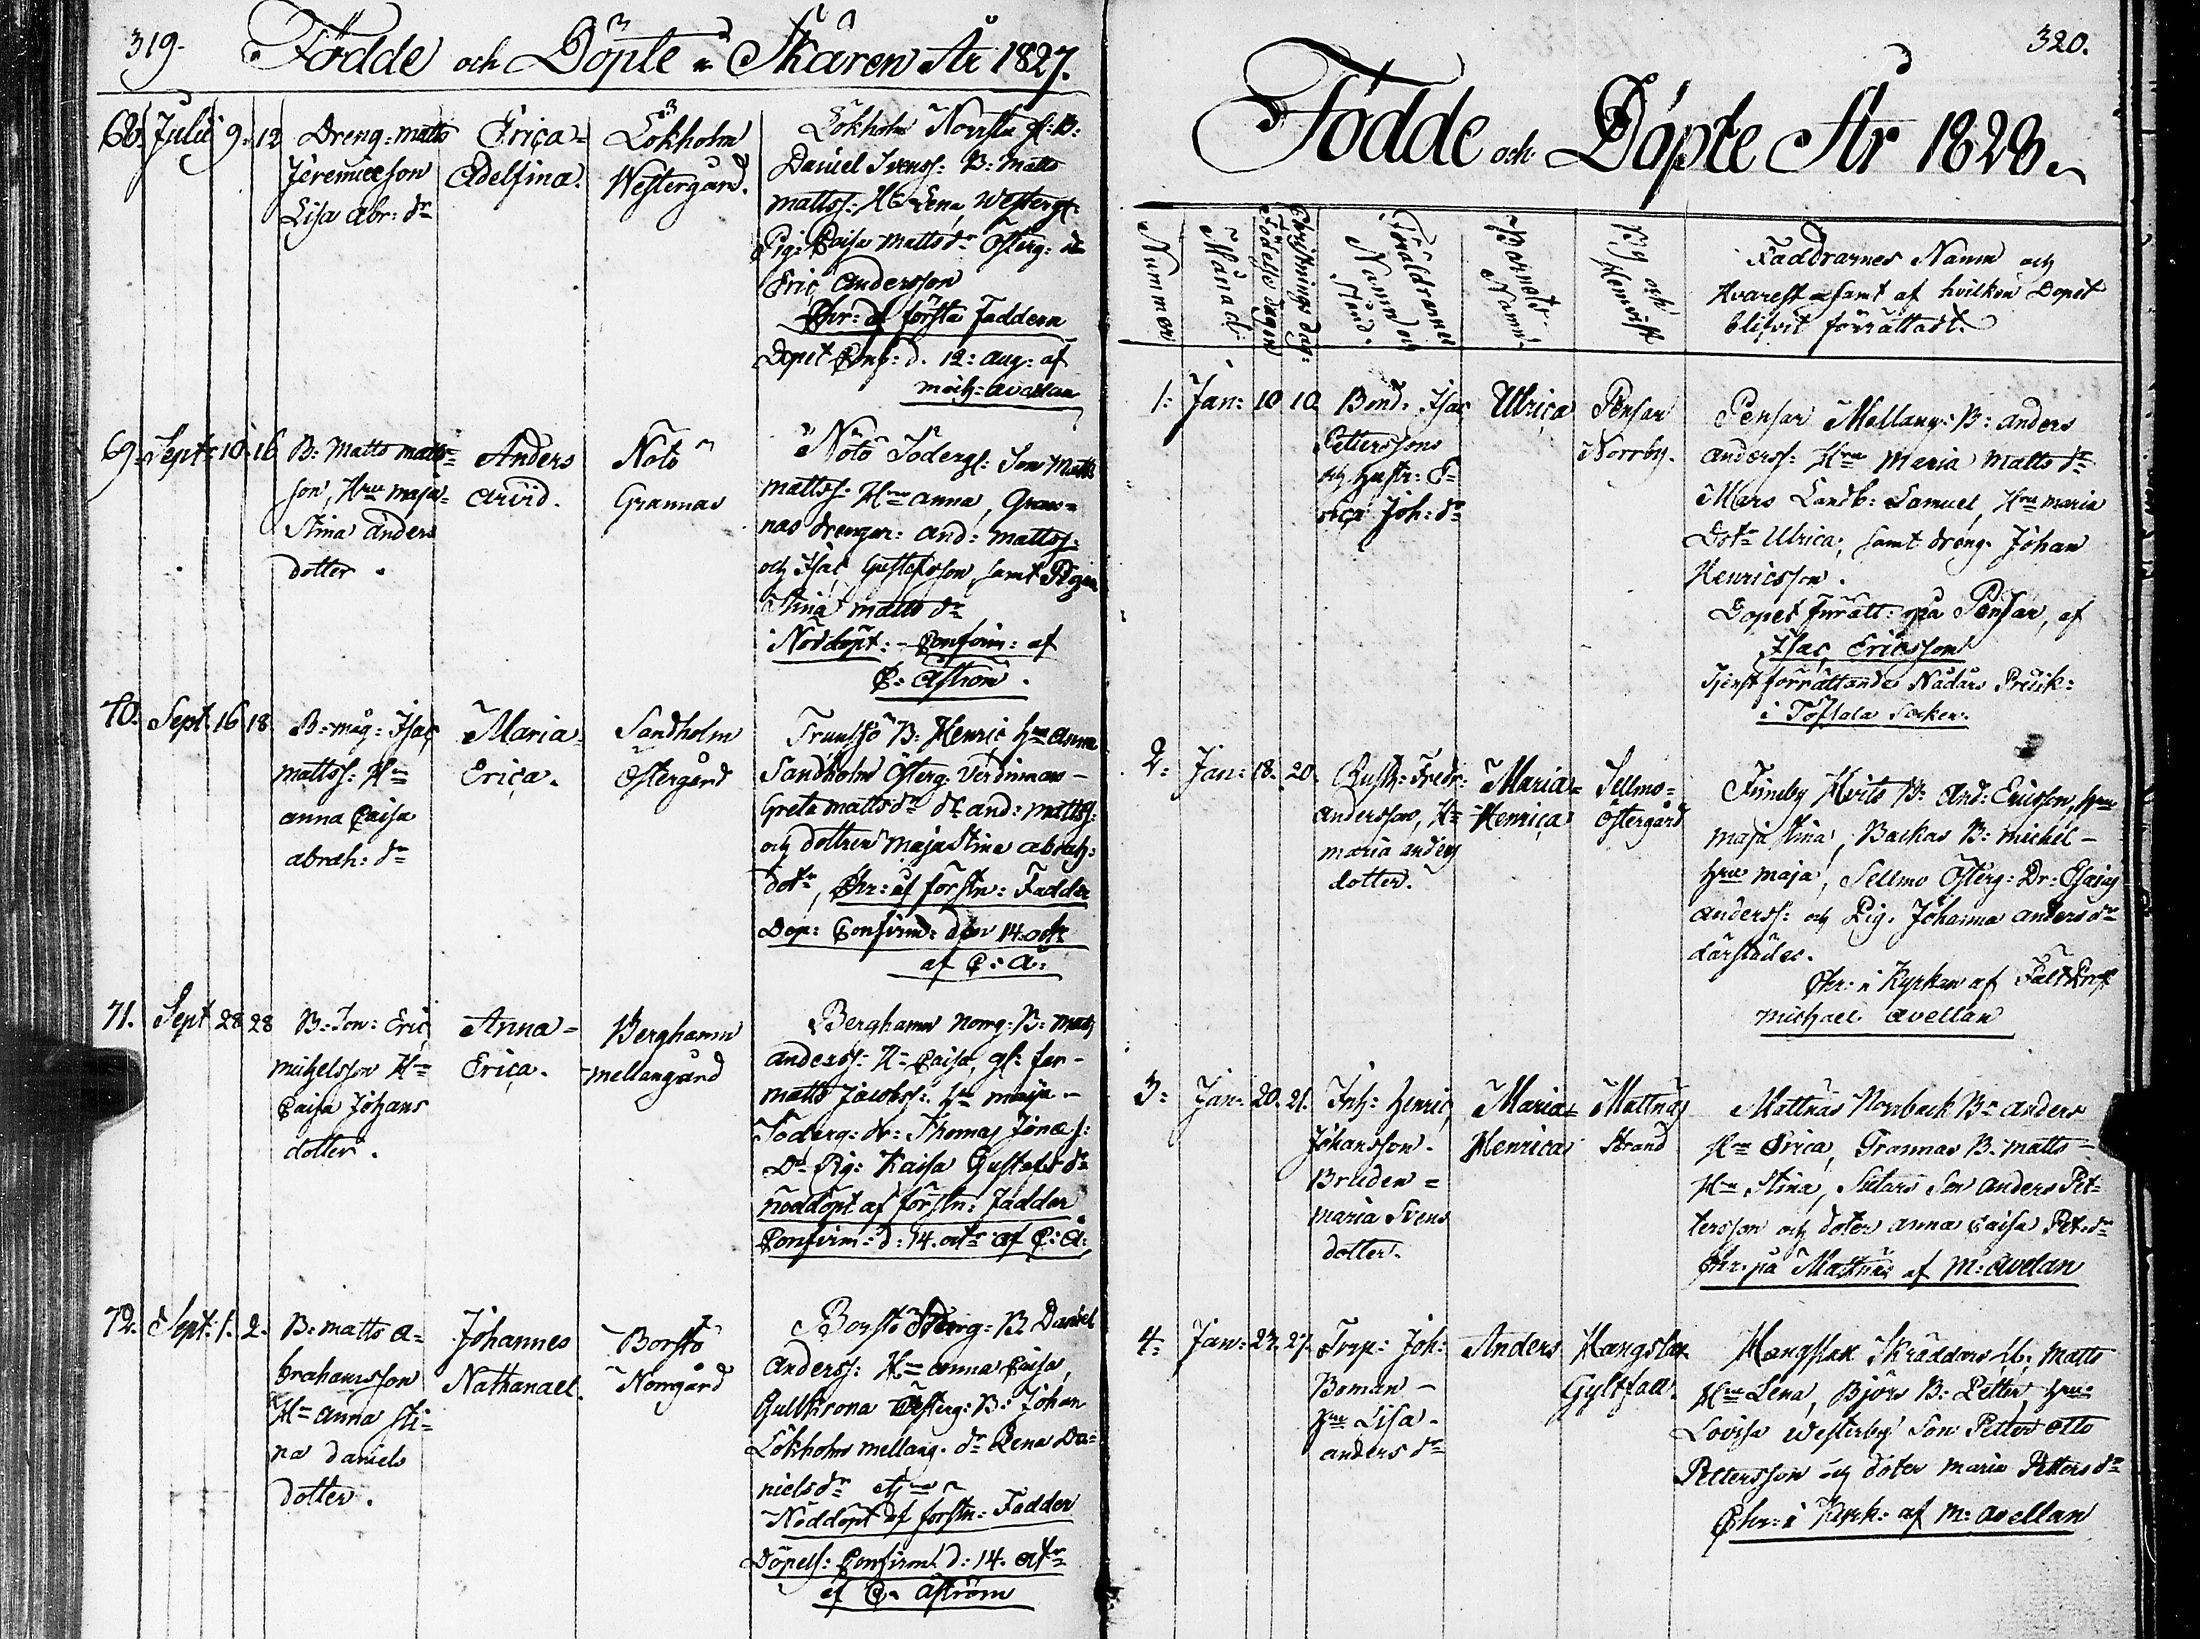 319.
Födde och Döpte i Skären År 1827.
68. Julii 9. 12
Dreng: Matts
Jeremiæson
Lisa Abr: dr
Erica
Adelfina.
Lökholm
Westergård.
Lökholm Norrsta
Daniel Svenss: B: Matts
Mattss: Lena Westerg:
Pig: Caisa Mattsdr Österg:
Eric Andersson
Chr: af första Faddern
Dopet Conf: d. 12: Aug: af
Avellan
69. Sept: 10. 16.
B: Matts Matts-
son, Hru Maja
Stina Anders
dotter.
Anders
Arvid.
Nötö
Grannas
Nötö Söderg: Son Matts
Mattss: Hru Anna, Gran-
nas drengar: And: Mattss:
och Isac Gustafsson, samt Pigan
Stina Matts dr
Nöddöpt: Confirm: af
C: Åström.
70. Sept. 16. 18.
B: måg: Isac
Mattss: Hu
Anna Caisa
Abrah: dr
Maria
Erica.
Sandholm
Östergård
Trunsö B: Henric Hru Anna
Sandholm Österg:
Greta Matts dr And: Mattss:
och dottren Maja Stina Abrah:
dotr, Chr: af förstn: Fadder
Dop: Confirmd: den 14. octr
af C: A:
71. Sept 28 28
B: Son: Eric
Michelsson Hu
Caisa Johans
dotter.
Anna
Erica.
Berghamn
mellangård
Berghamn norrg: B:
Anderss: Hu Caisa, gl: far
Matts Jacobss: Hu Maija
Söderg: dr: Thomas Jonæ s:
Pig: Kaisa Gustafs dr
nöddöpt af förstn: Fadder
Confirm: d: 14. octr af C: A:
72. Sept: 1. 2.
B: Matts A-
brahamsson
Hu Anna Sti-
na Daniels
dotter.
Johannes
Nathanael.
Borstö
Norrgård
Borstö Söderg: B: Daniel
Anderss: Hu Anna Caisa,
Gullkrona Österg: B: Johan
Lökholm mellang. dr Lena Da-
niels dr
Nöddöpt af förstn: Fadder
Döpels: Confirm: d: 14. octr
af C. Åström
320.
Födde och Döpte År 1828.
Nummer
Månad.
Födelse Dagen
Christnings dag:
Föräldrarnes
Namn och
Stånd.
Barnets
Namn.
By och
Hemvist
Faddrarnes Namn och
Hvarest samt af hvilken Dopet
blifvit förrättadt.
1: Jan: 10 10
Bond: Isac
Petterssons
och Hustr: E-
rica Joh: dr
Ulrica
Pensar
Norrby.
Pensar Mellang: B: Anders
Anderss: Hru Maria Matts dr
Mars Landb: Samuel, Hru Maria
Dotr Ulrica, samt dreng Johan
Henricsson.
Dopet förätt: på Pensar, af
Isac Ericsson
Tjenst förrättande Nådårs Predik:
i Töfsala Socken.
2. Jan: 18. 20.
Rusth: Fredr:
Andersson, Hu
Maria Anders
dotter.
Maria
Henrica
Sellmo
Östergård
Finnby Hvits B: And: Ericsson, Hru
Maja Stina, Backas B: Michel
Hru Maja, Sellmo Österg: Dr: Esaias
Anderss: och Pig. Johanna Anders dr
därstädes.
Chr: i Kyrkan af
Michael Avellan
3: Jan: 20. 21.
Inh: Henric
Johansson
Bruden
Maria Svens
dotter.
Maria
Henrica
Mattnäs
Strand
Mattnäs Norrback Br Anders
Hru Erica, Grannas B. Matts
Hru Stina, Sutars Son Anders Pet-
tersson och doter Anna Caisa Pet. dr
Chr. på Mattnäs af M: Avelan
4: Jan: 24. 27.
Torp: Joh:
Boman
Hru Lisa
Anders dr
Anders
Hangslax
Gyltfall.
Hangslax Skräddars Matts
Hru Lena, Björs B: Petter, Hru
Lovisa Westerby Son Petter Otto
Pettersson och doter Maria Petters dr
Chr: i Kyrk: af M: Avellan